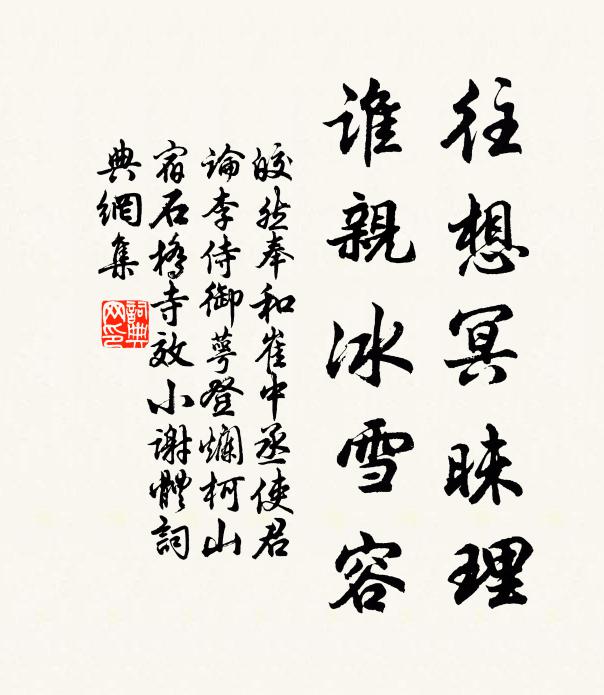 往想冥昧理
谁親冰雪容
皎然奉和崔中丞使君
論李侍御萼登爛柯山
宿石橋寺效小谢體詞
典網集
詞典
网印